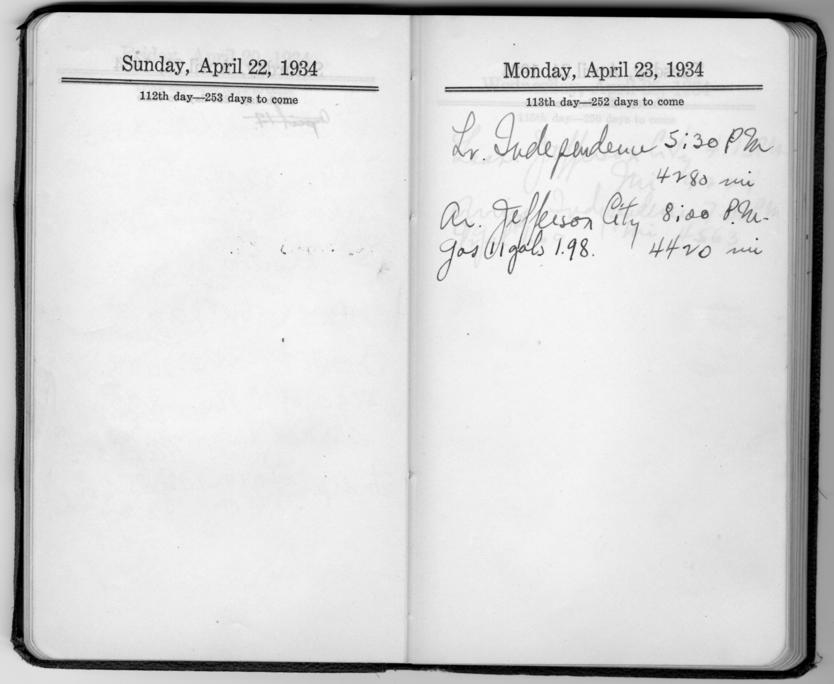 Sunday, April 22, 1934
112th day—253 days to come
Monday, April 23, 1934
113th day—252 days to come
Lv. Independence 5:30 P.M
4280 mi
Ar. Jefferson City 8:00 P.M.
gas 11 gals 1.98. 4420 mi